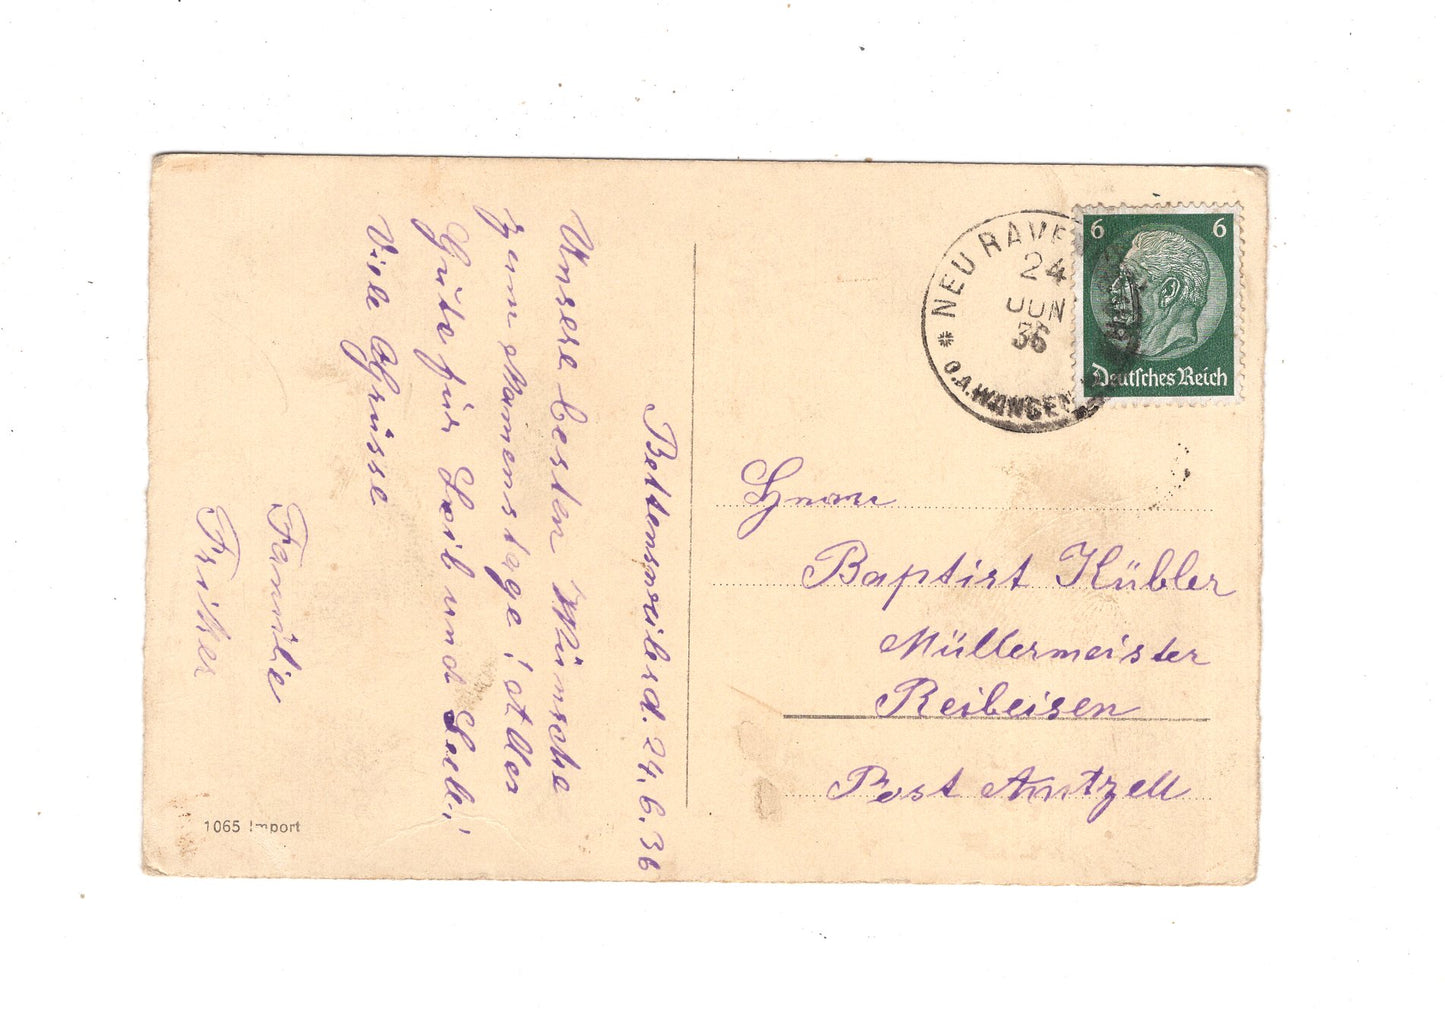 Bettensweiler d. 24.6.36
Unsere besten Wünsche
zum Namenstage! Alles
Gute für Leib und Seele!
Viele Grüsse
Familie
Friker
1065 Import
NEURAVE
24
JUN
36
O.A.WANGEN
6 6
Deutsches Reich
Herrn
Baptist Kübler
Müllermeister
Reibeisen
Post Amtzell